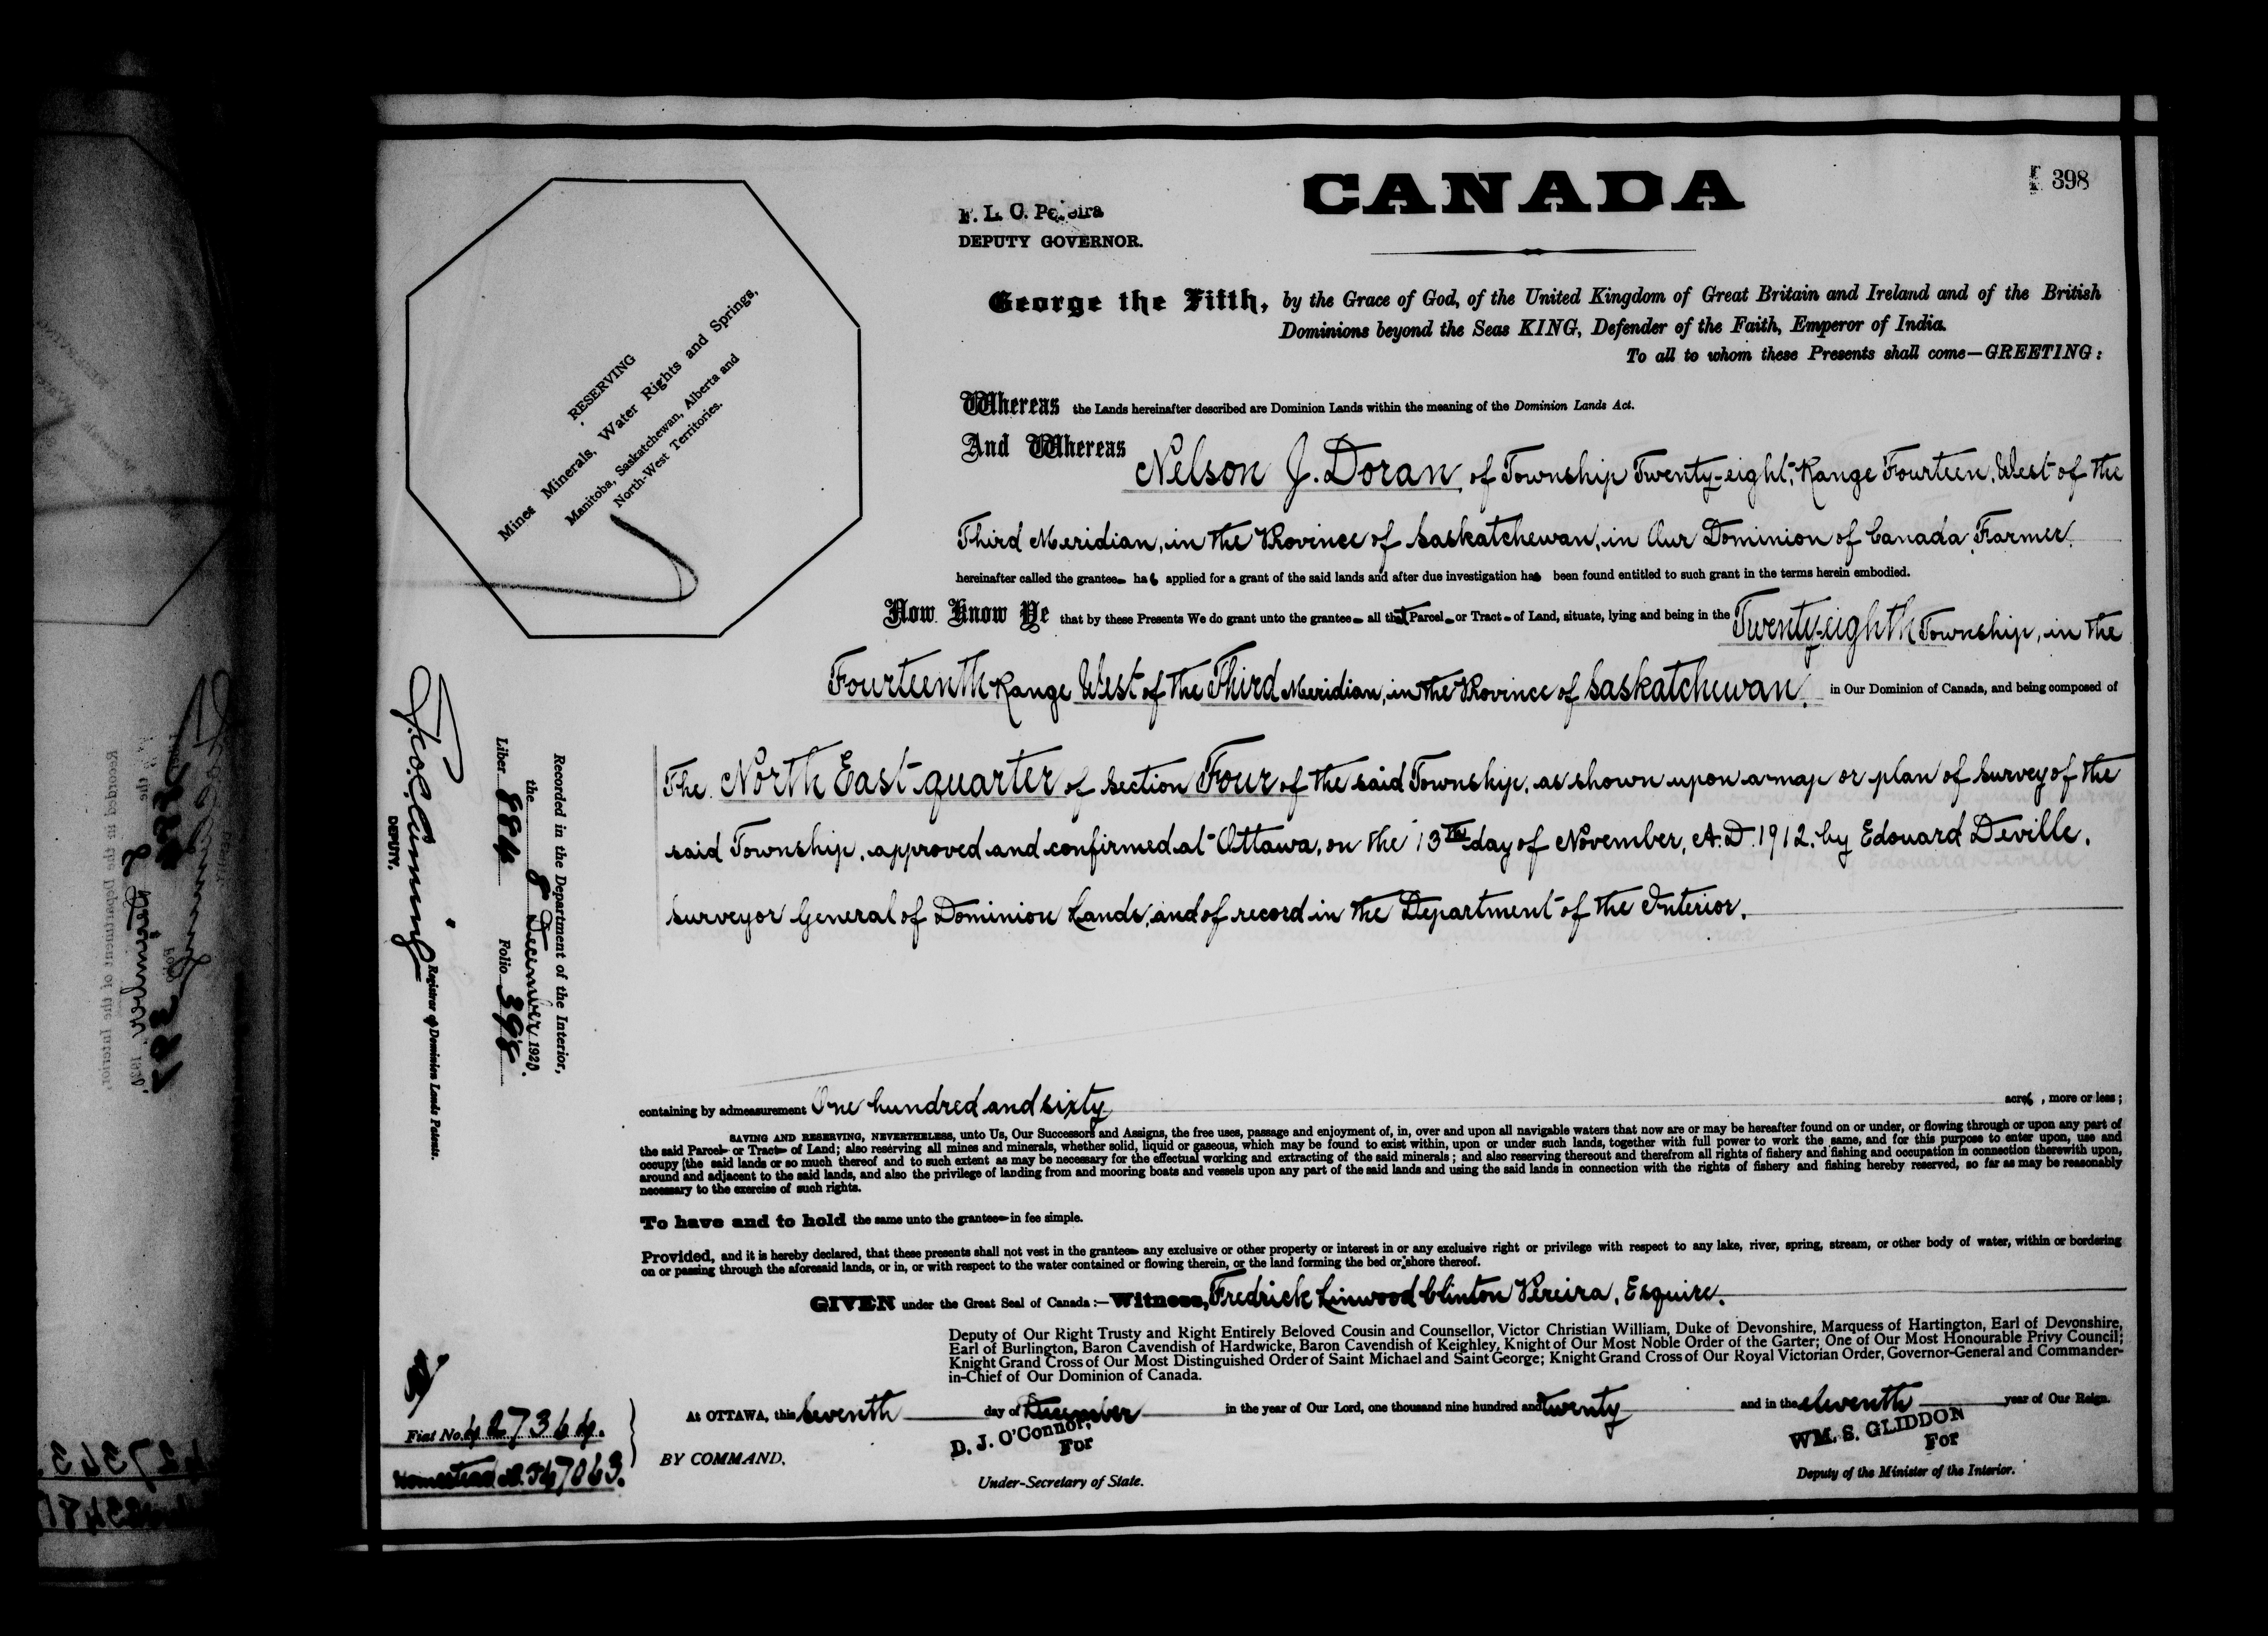 CANADA
398
F. L. C. Pereira
DEPUTY GOVERNOR.
George the Fifth, by the Grace of God, of the United Kingdom of Great Britain and Ireland and of the British
Dominions beyond the Seas KING, Defender of the Faith, Emperor of India.
To all to whom these Presents shall come—GREETING:
RESERVING
Mines Minerals, Water Rights and Springs,
Manitoba, Saskatchewan, Alberta and
North-West Territories.
Whereas the Lands hereinafter described are Dominion Lands within the meaning of the Dominion Lands Act.
And Whereas Nelson J. Doran, of Township Twenty-eight, Range Fourteen, West of the
Third Meridian, in the Province of Saskatchewan, in Our Dominion of Canada, Farmer.
hereinafter called the grantee has applied for a grant of the said lands and after due investigation has been found entitled to such grant in the terms herein embodied.
Now Know Ye that by these Presents We do grant unto the grantee all that Parcel or Tract of Land, situate, lying and being in the Twenty-eighth Township, in the
Fourteenth Range West of the Third Meridian, in the Province of Saskatchewan, in Our Dominion of Canada, and being composed of
The North East quarter of Section Four of the said Township, as shown upon a map or plan of survey of the
said Township, approved and confirmed at Ottawa, on the 13th day of November, A.D. 1912, by Edouard Deville,
Surveyor General of Dominion Lands, and of record in the Department of the Interior.
Recorded in the Department of the Interior,
the 8 December 1920.
Liber 884 Folio 398
Registrar of Dominion Lands Patents.
DEPUTY.
containing by admeasurement One hundred and sixty acres, more or less;
SAVING AND RESERVING, NEVERTHELESS, unto Us, Our Successors and Assigns, the free uses, passage and enjoyment of, in, over and upon all navigable waters that now are or may be hereafter found on or under, or flowing through or upon any part of
the said Parcel or Tract of Land; also reserving all mines and minerals, whether solid, liquid or gaseous, which may be found to exist within, upon or under such lands, together with full power to work the same, and for this purpose to enter upon, use and
occupy the said lands or so much thereof and to such extent as may be necessary for the effectual working and extracting of the said minerals; and also reserving thereout and therefrom all rights of fishery and fishing and occupation in connection therewith upon,
around and adjacent to the said lands, and also the privilege of landing from and mooring boats and vessels upon any part of the said lands and using the said lands in connection with the rights of fishery and fishing hereby reserved, so far as may be reasonably
necessary to the exercise of such rights.
To have and to hold the same unto the grantee in fee simple.
Provided, and it is hereby declared, that these presents shall not vest in the grantee any exclusive or other property or interest in or any exclusive right or privilege with respect to any lake, river, spring, stream, or other body of water, within or bordering
on or passing through the aforesaid lands, or in, or with respect to the water contained or flowing therein, or the land forming the bed or shore thereof.
GIVEN under the Great Seal of Canada:—Witness, Fredrick Linwood Clinton Pereira, Esquire,
Deputy of Our Right Trusty and Right Entirely Beloved Cousin and Counsellor, Victor Christian William, Duke of Devonshire, Marquess of Hartington, Earl of Devonshire,
Earl of Burlington, Baron Cavendish of Hardwicke, Baron Cavendish of Keighley, Knight of Our Most Noble Order of the Garter; One of Our Most Honourable Privy Council;
Knight Grand Cross of Our Most Distinguished Order of Saint Michael and Saint George; Knight Grand Cross of Our Royal Victorian Order, Governor-General and Commander-
in-Chief of Our Dominion of Canada.
At OTTAWA, this seventh day of December in the year of Our Lord, one thousand nine hundred and twenty and in the eleventh year of Our Reign.
BY COMMAND,
D. J. O'Connor,
For
Under-Secretary of State.
WM. S. GLIDDON
For
Deputy of the Minister of the Interior.
Fiat No. 427364.
Homestead